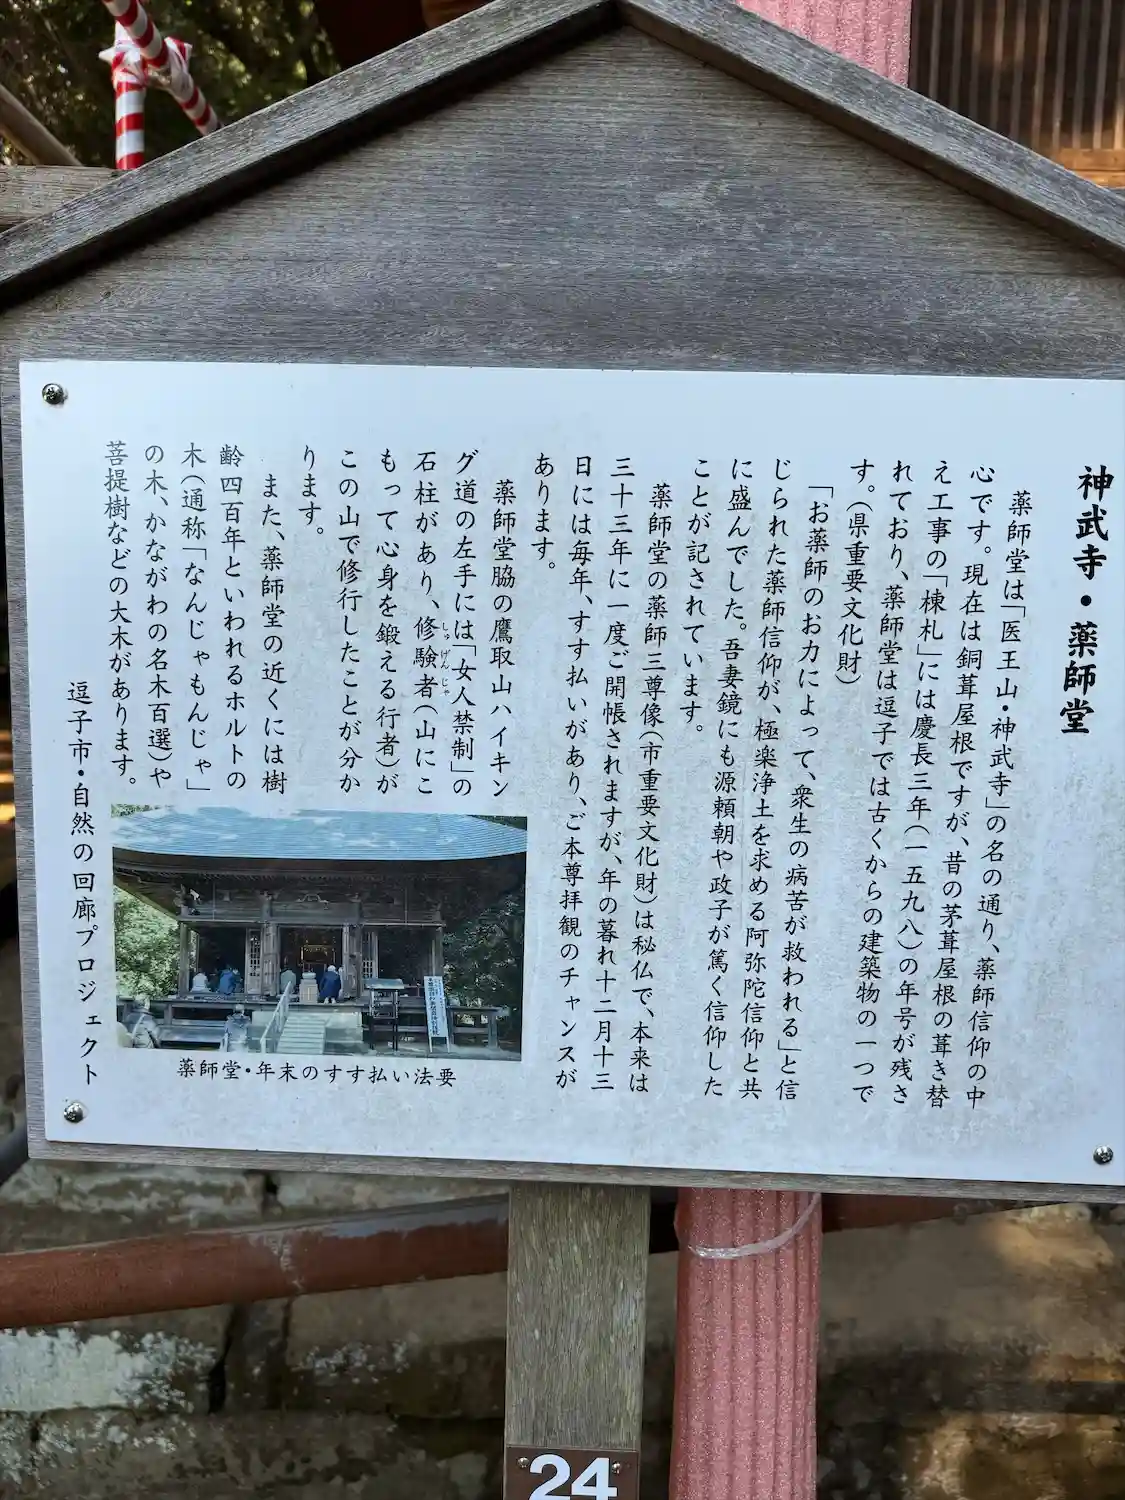 神武寺・薬師堂
薬師堂は「医王山・神武寺」の名の通り、薬師信仰の中
心です。現在は銅葺屋根ですが、昔の茅葺屋根の葺き替
え工事の「棟札」には慶長三年(一五九八)の年号が残さ
れており、薬師堂は逗子では古くからの建築物の一つで
す。(県重要文化財)
「お薬師のお力によって、衆生の病苦が救われる」と信
じられた薬師信仰が、極楽浄土を求める阿弥陀信仰と共
に盛んでした。吾妻鏡にも源頼朝や政子が篤く信仰した
ことが記されています。
薬師堂の薬師三尊像(市重要文化財)は秘仏で、本来は
三十三年に一度ご開帳されますが、年の暮れ十二月十三
日には毎年、すす払いがあり、ご本尊拝観のチャンスが
あります。
薬師堂脇の鷹取山ハイキン
グ道の左手には「女人禁制」の
石柱があり、修験者(山にこ
しゅげんじゃ
もって心身を鍛える行者)が
この山で修行したことが分か
ります。
また、薬師堂の近くには樹
齢四百年といわれるホルトの
木(通称「なんじゃもんじゃ」
の木、かながわの名木百選)や
菩提樹などの大木があります。
逗子市・自然の回廊プロジェクト
薬師堂・年末のすす払い法要
24